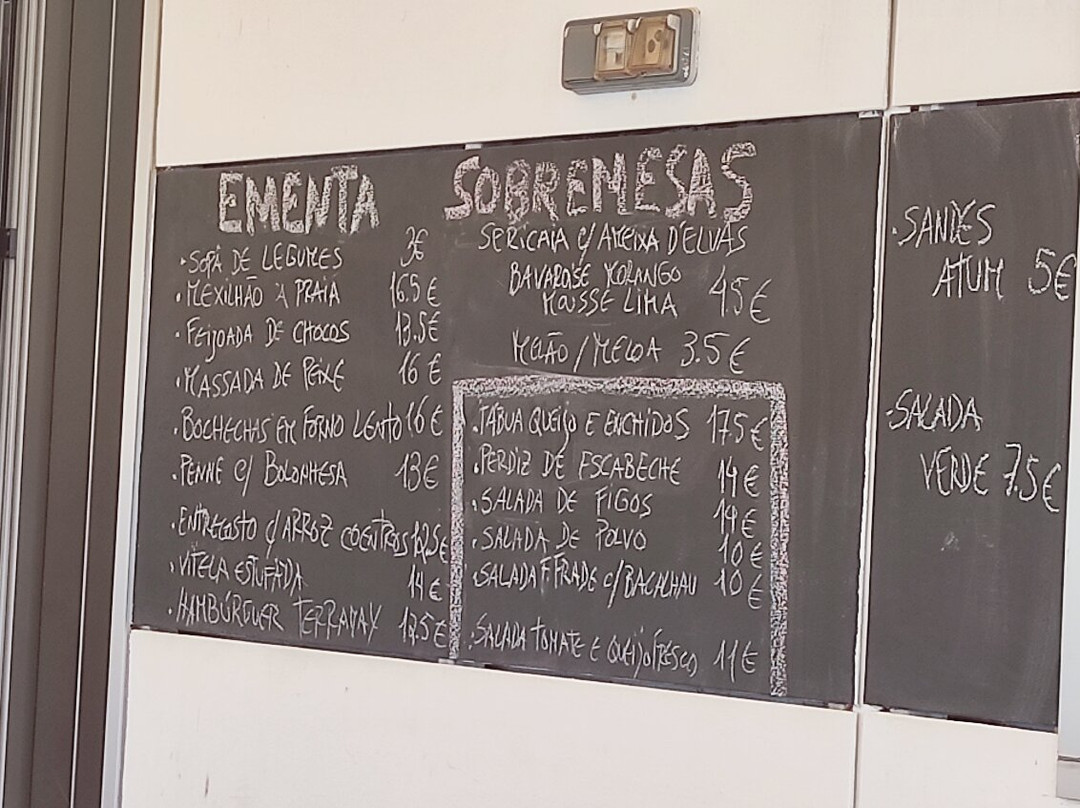 EMENTA
• SOPA DE LEGUMES 3€
• MEXILHÃO À PRAIA 16.5€
• FEIJOADA DE CHOCOS 13.5€
• MASSADA DE PEIXE 16€
• BOCHECHAS EM FORNO LENTO 16€
• PENNE C/ BOLONHESA 13€
• ENTRECOSTO C/ ARROZ COENTROS 12,5€
• VITELA ESTUFADA 14€
• HAMBÚRGUER TERRAWAY 12.5€
SOBREMESAS
SERICAIA C/ AMEIXA D'ELVAS
BAVAROISE MORANGO
MOUSSE LIMA 4.5€
MELÃO/MELOA 3.5€
• TÁBUA QUEIJO E ENCHIDOS 17.5€
• PERDIZ DE ESCABECHE 14€
• SALADA DE FIGOS 14€
• SALADA DE POLVO 10€
• SALADA F. FRADE C/ BACALHAU 10€
• SALADA TOMATE E QUEIJO FRESCO 11€
• SANDES
ATUM 5€
• SALADA
VERDE 7.5€